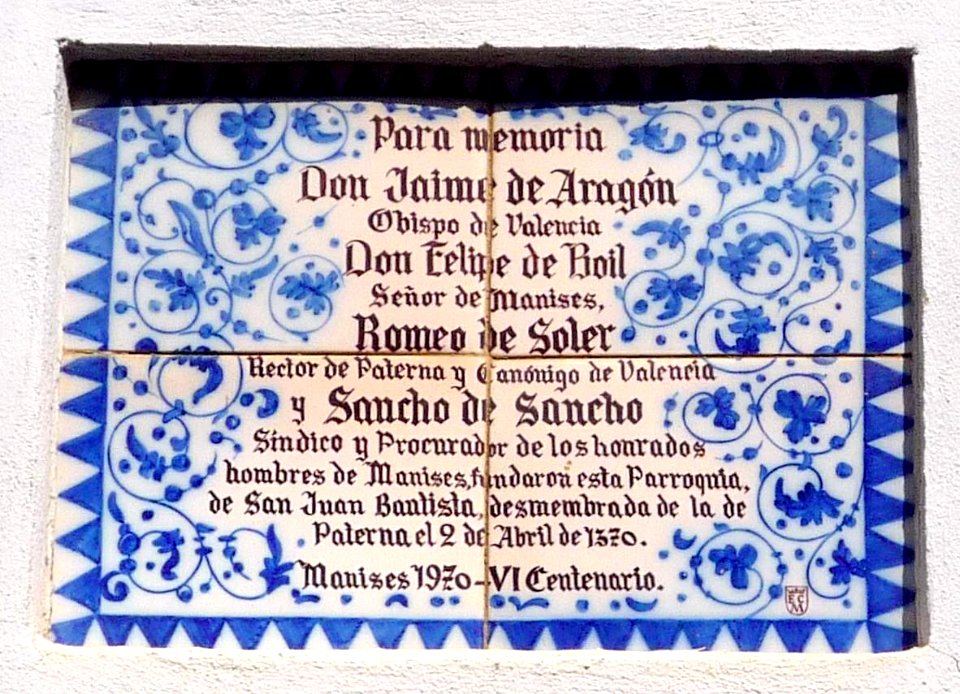 Para memoria
Don Jaime de Aragón
Obispo de Valencia
Don Felipe de Boil
Señor de Manises,
Romeo de Soler
Rector de Paterna y Canónigo de Valencia
y Sancho de Sancho
Síndico y Procurador de los honrados
hombres de Manises, fundaron esta Parroquia,
de San Juan Bautista, desmembrada de la de
Paterna el 2 de Abril de 1370.
Manises 1970-VI Centenario.
E C
M